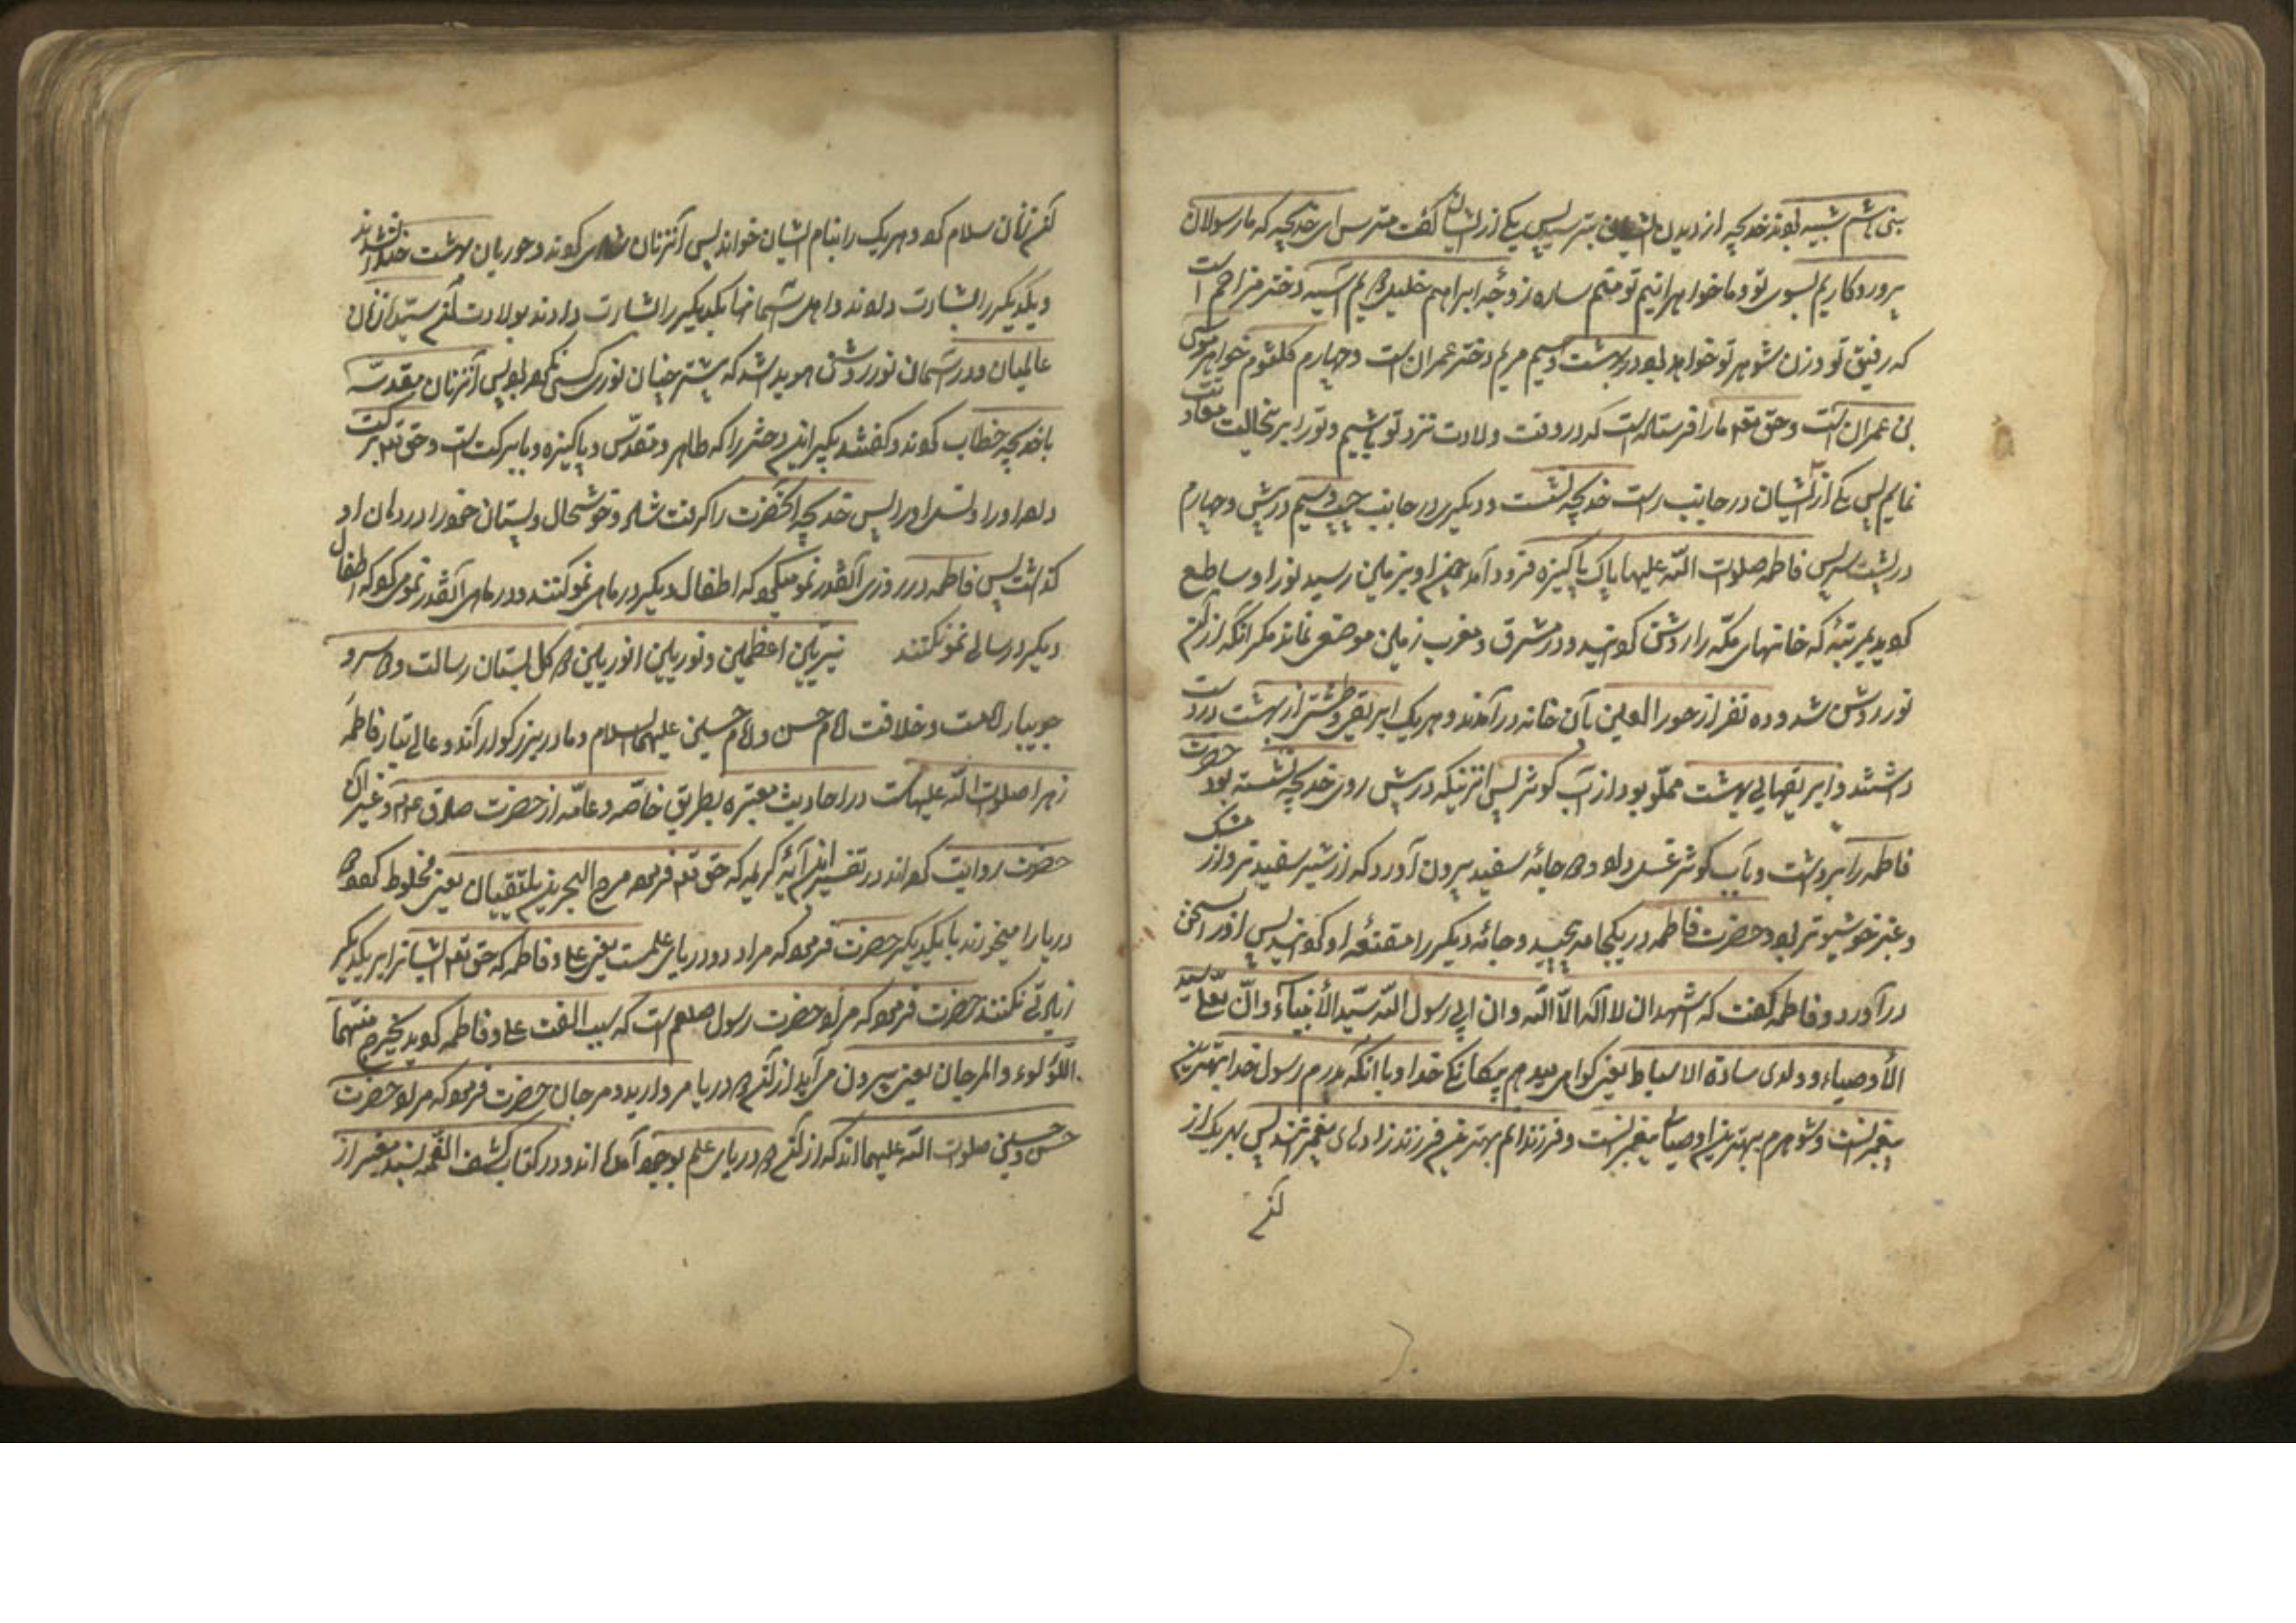 بنی هاشم شبیه بودند خدیجه از دیدن ایشان بترسید پس یکی از ایشان گفت مترس ای خدیجه که ما رسولان
پروردکاریم بسوی تو و ما خواهران توئیم منم ساره زوجۀ ابراهیم خلیل دویم آسیه دختر مزاحم است
که رفیق تو و زن شوهر تو خواهد بود در بهشت و سیم مریم دختر عمران است و چهارم کلثوم خواهر موسی
بن عمران است و حق تعه ما را فرستاده است که در وقت ولادت نزد تو باشیم و تو را بر اینحالت معاونت
نمایم پس یکی از ایشان در جانب راست خدیجه نشست و دیکری در جانب چپ و سیم در پیش و چهارم
در پشت سر پس فاطمه صلوات الله علیها پاک و پاکیزه فرود آمد چون او بزمین رسید نور او ساطع
کردید بمرتبۀ که خانهای مکه را روشن کردانید و در مشرق و مغرب زمین موضعی نماند مکر آنکه از آن
نور روشن شد و ده نفر از حور العین بآن خانه در آمدند و هر یک ابریقی و طشتی از بهشت در دست
داشتند و ابریقهای بهشت مملو بود از آب کوثر پس آنزنیکه در پیش روی خدیجه نشسته بود حضرت
فاطمه را برداشت و بآب کوثر غسل داد و دو جامۀ سفید بیرون آورد که از شیر سفیدتر و از مشک
و عنبر خوشبوتر بود و حضرت فاطمه در یکجامه پیچید و جامۀ دیکر را مقنعۀ او کردانید پس او را بسخن
در آورد و فاطمه کفت که اشهد ان لا اله الا الله و ان ابی رسول الله سید الأنبیاء و ان بعلی سید
الأوصیاء و ولدی سادة الاسباط یعنی کواهی میدهم بیکانکی خدا و با آنکه پدرم رسول خدا بهترین
پیغمبرانست و شوهرم بهترین اوصیای پیغمبرانست و فرزندانم بهترین فرزندزادهای پیغمبرانند پس بهر یک از
آن
آن زنان سلام کرد و هر یک را بنام ایشان خواند پس آنزنان شادی کردند و حوریان بهشت خندان شدند
و یکدیکر را بشارت دادند و اهل آسمانها یکدیکر را بشارت دادند بولادت آن سیدۀ زنان
عالمیان و در آسمان نور روشنی هویدا شد که پیشتر چنان نوری کسی ندیده بود پس آنزنان مقدسه
با خدیجه خطاب کردند و کفتند بکیر این دختر را که طاهر و مقدس و پاکیزه و با برکت است و حق تعه برکت
داده او را و نسل او را پس خدیجه آنحضرت را کرفت شاد و خوشحال و پستان خود را در دهان او
کذاشت پس فاطمه در روزی آنقدر نمو میکرد که اطفال دیکر در ماهی نمو کنند و در ماهی آنقدر نمو میکرد که اطفال
دیکر در سالی نمو نکنند نیرین اعظمین و نورین انورین دو کل بستان رسالت و دو سرو
جویبار امامت و خلافت امام حسن و امام حسین علیهما السلام و مادر بزرکوار آندو عالی تبار فاطمه
زهرا صلوات الله علیهاست در احادیث معتبره بطریق خاصه و عامه از حضرت صادق ع و غیر آن
حضرت روایت کرده اند در تفسیر این آیۀ کریمه که حق تعه فرموده مرج البحرین یلتقیان یعنی مخلوط کرد دو
دریا را میخورند با یکدیکر حضرت فرمود که مراد دو دریای علمست یعنی علی و فاطمه که حق تعه ایشانرا بر یکدیکر
زیادتی نکنند حضرت فرمود که مراد حضرت رسول صلعم است که سبب الفت علی و فاطمه کردید یخرج منهما
اللؤلوء والمرجان یعنی بیرون می آید از آن دو دریا مروارید و مرجان حضرت فرمود که مراد حضرت
حسن و حسین صلوات الله علیهما اند که از آن دو دریای علم بوجود آمده اند و در کتاب کشف الغمه بسند معتبر از